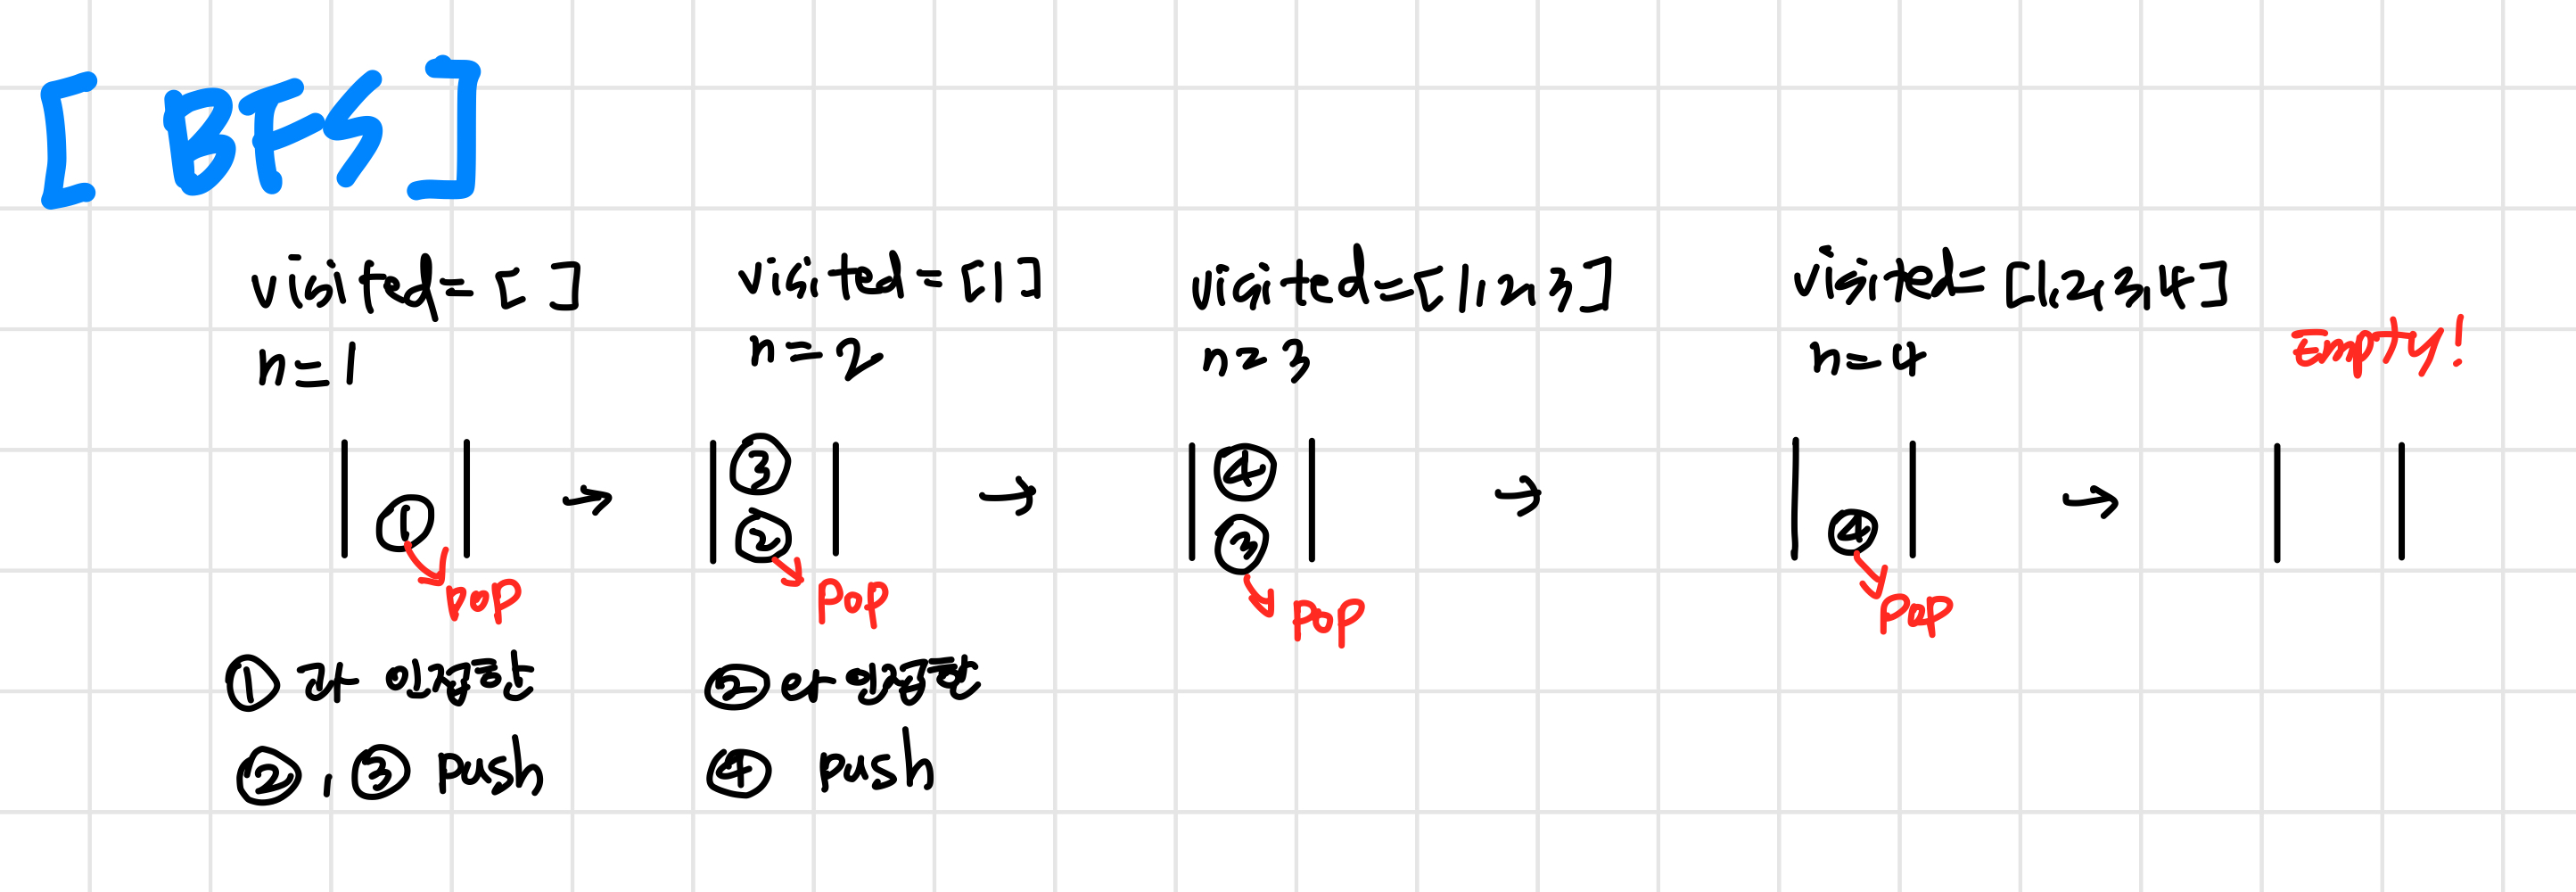 [ BFS ]
visited= [ ]
n=1
①
pop
① 과 인접한
②, ③ push
→
visited=[1]
n=2
③
②
pop
② 와 인접한
④ push
→
visited=[1,2,3]
n=3
④
③
pop
→
visited=[1,2,3,4]
n=4
④
pop
→
Empty!